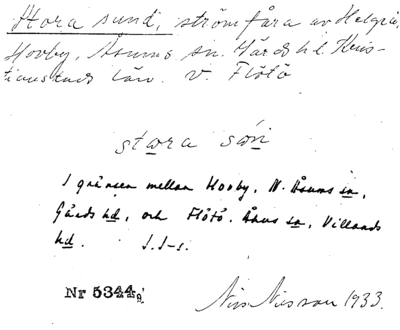 Hora sund, strömfåra av Helgeå,
Horby, Åsums sn. Gärds hd. Kris-
tianstads län. v. Flötö
stora søn
I gränsen mellan Horby, N. Åsums sn,
Gärds hd, och Flötö, Åhus sn, Villands
hd. S.S-s.
Nr 5344
Nils Nilsson 1933.